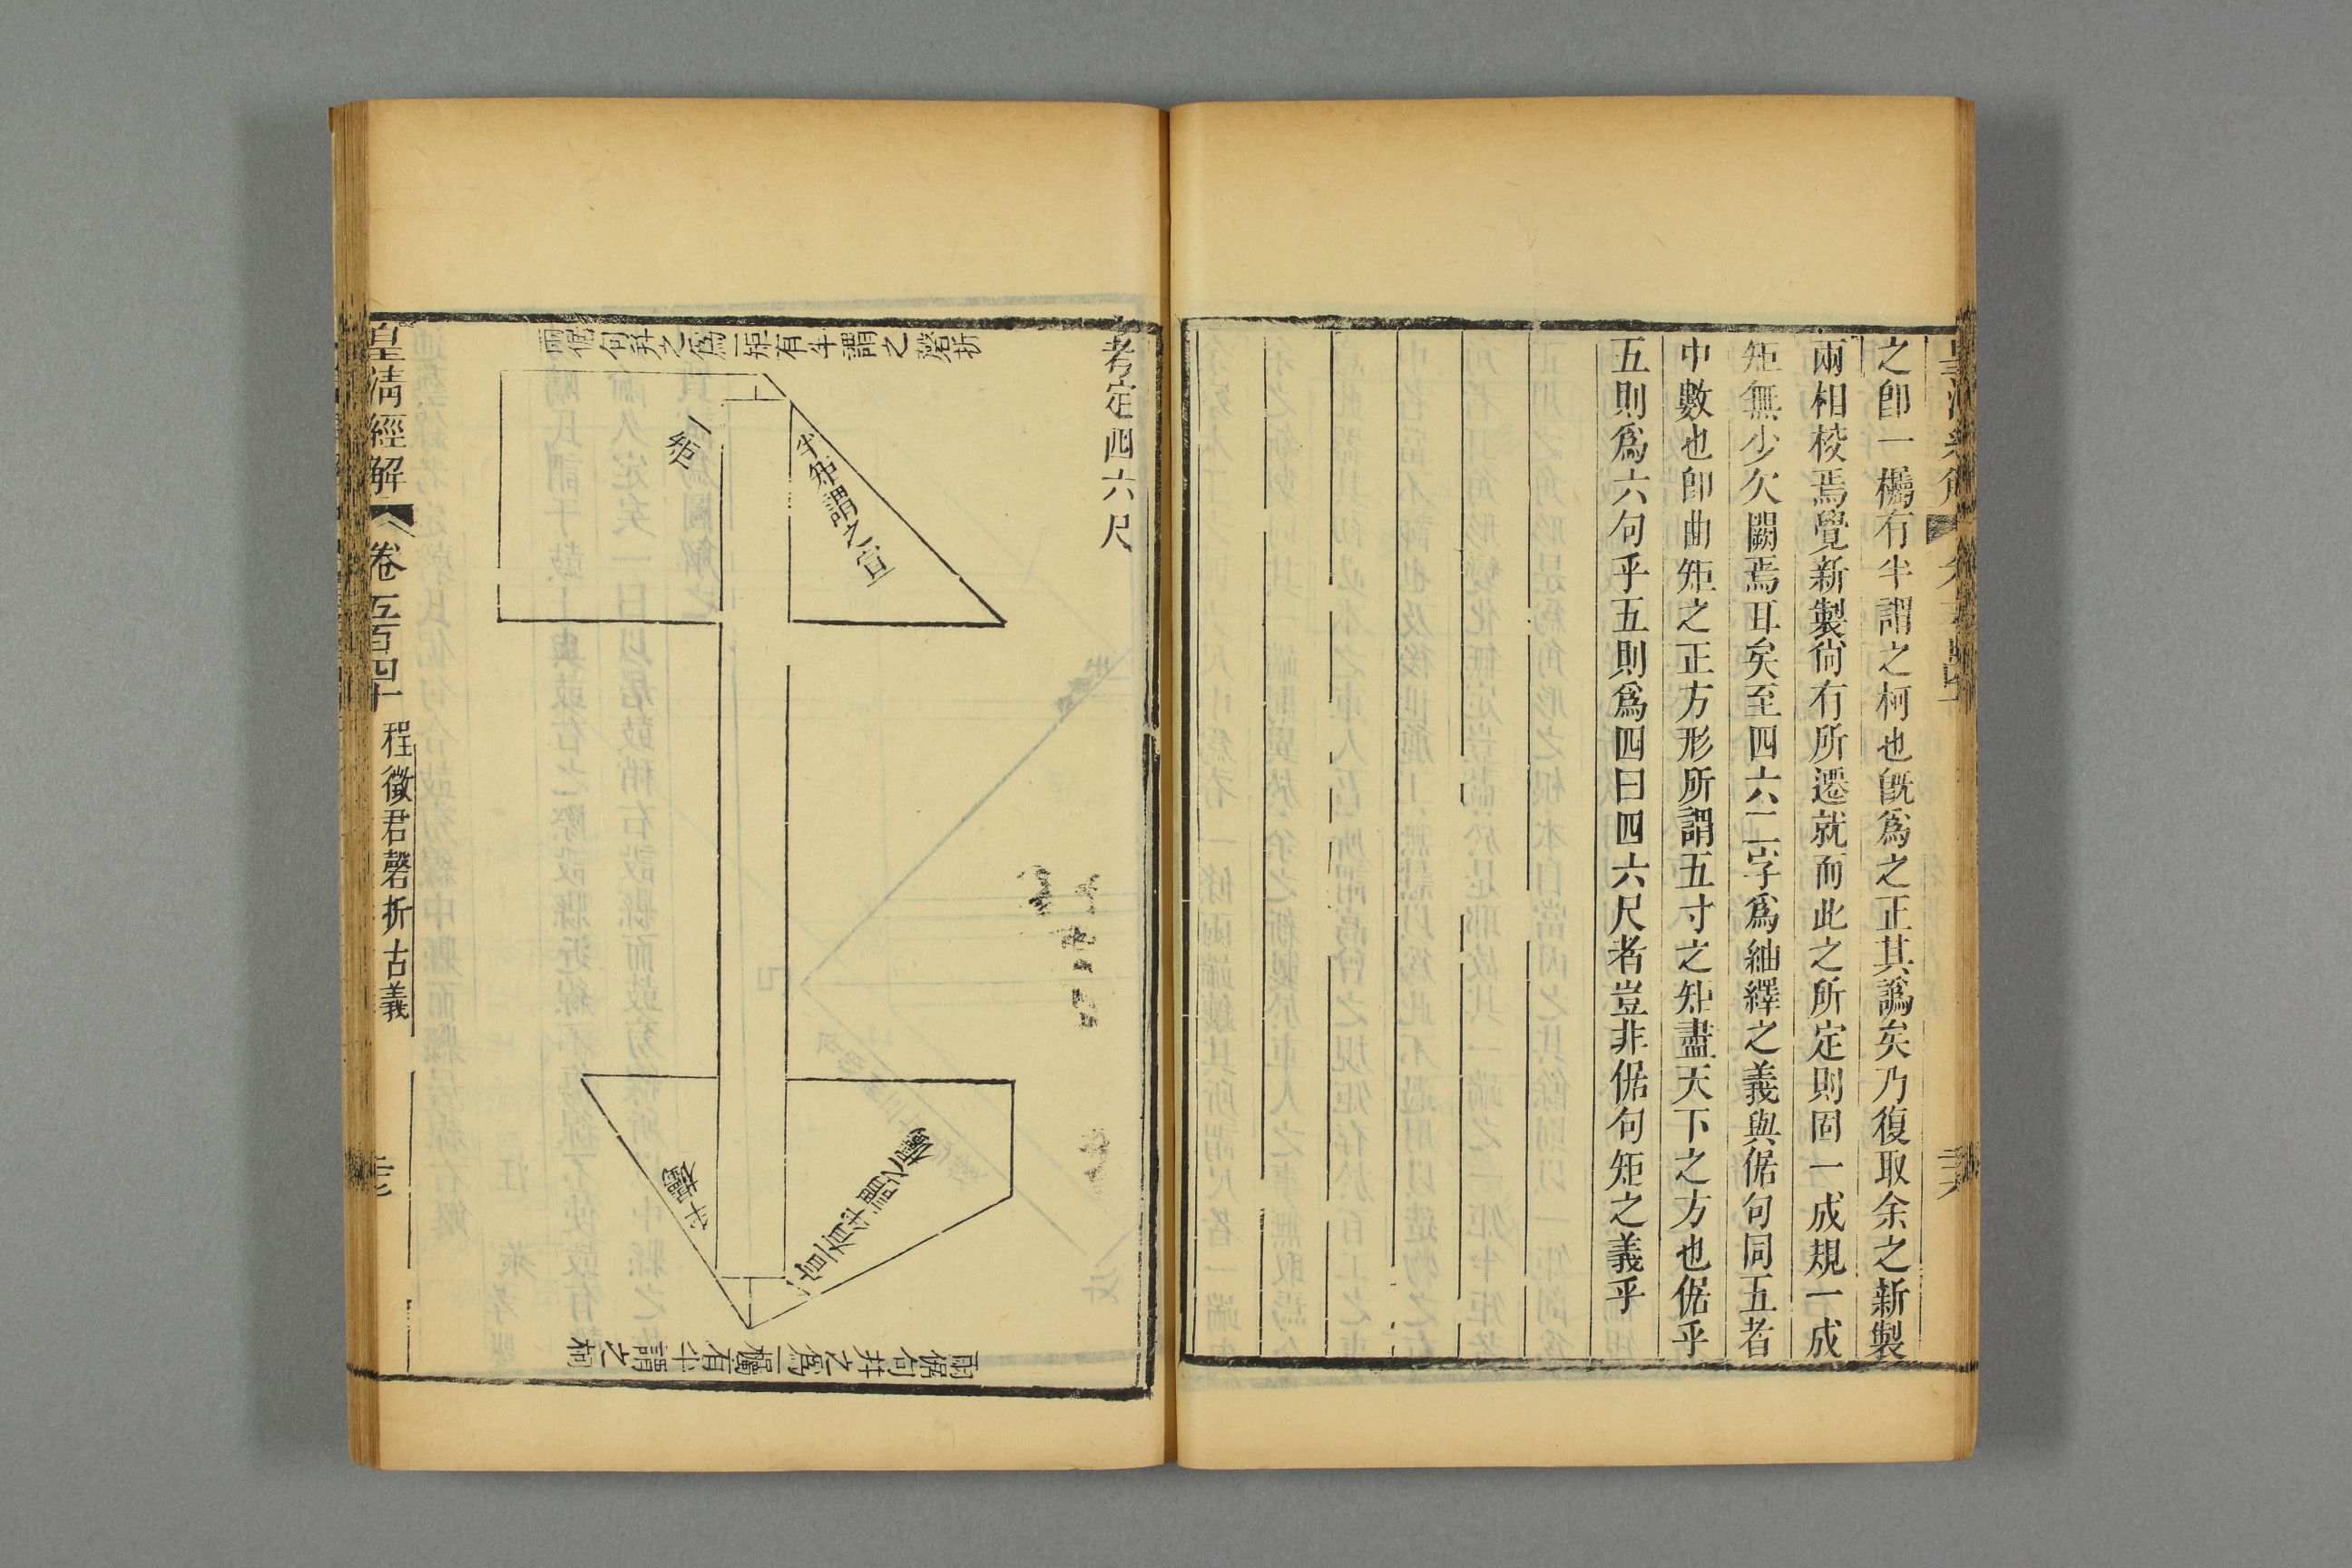 之卽一欘有半謂之柯也旣爲之正其譌矣乃復取余之新製
兩相棱焉覺新製尙有所遷就而此之所定則固一成規一成
矩無少欠闕焉耳矣至四六二字爲紬繹之義與倨句同五者
中數也卽曲矩之正方形所謂五寸之矩盡天下之方也倨乎
五則爲六句乎五則爲四曰四六尺者豈非倨句矩之義乎
考定四六尺
兩倨句幷之爲一矩有半謂之磬折
一矩
半矩謂之宣
半欘
一宣有半謂之欘
兩倨句幷之爲一欘有半謂之柯
皇淸經解
卷五百四十
程徵君磬折古義